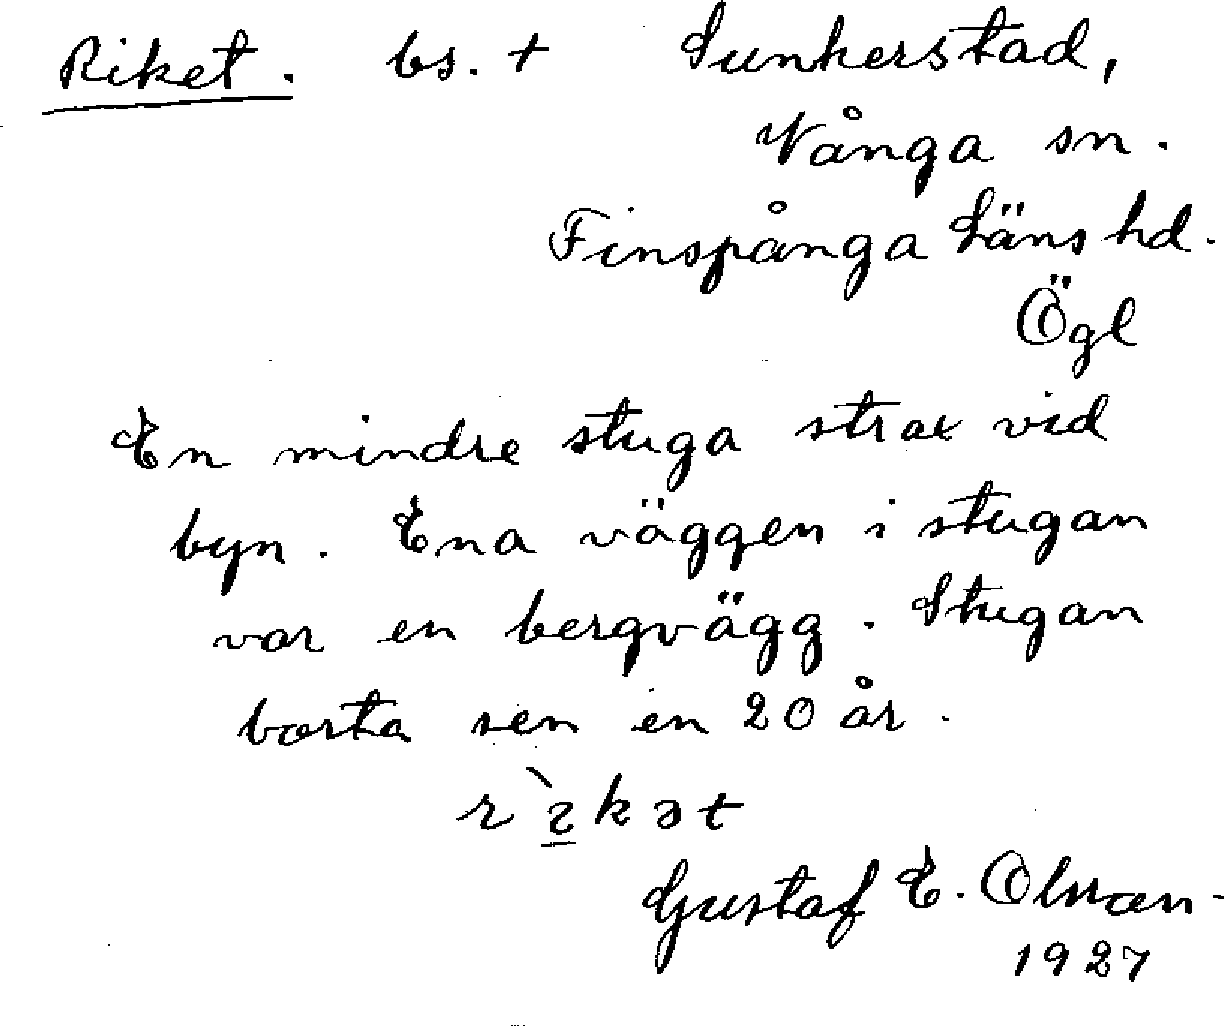 Riket. bs. + Sunkerstad,
Vånga sn.
Finspånga Läns hd.
Ögl
En mindre stuga strax vid
byn. Ena väggen i stugan
var en bergvägg. Stugan
borta sen en 20 år.
Gustaf E. Olsson
1927